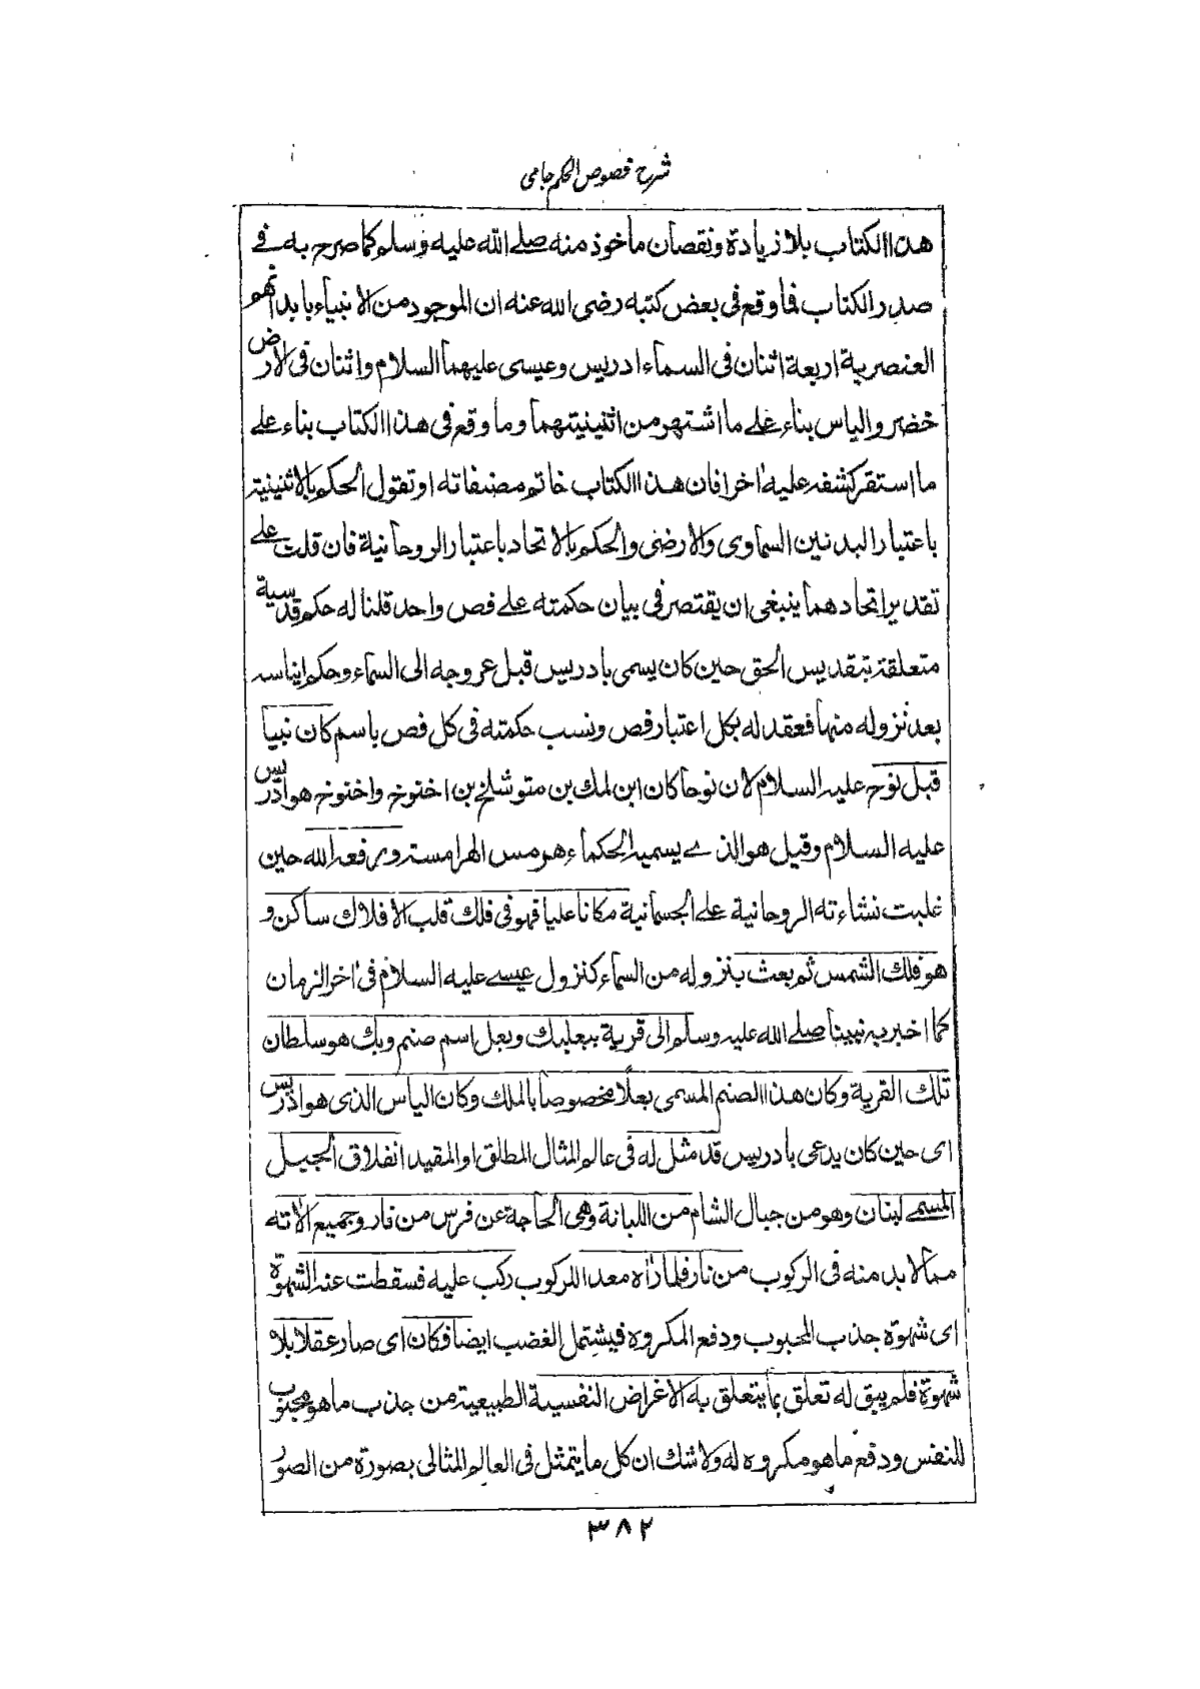 شرح فصوص الحکم جامی
هذا الكتاب بلا زيادة ونقصان مأخوذ منه صلے الله عليه وسلم كما صرح به فے
صدر الكتاب فما وقع فى بعض كتبه رضى الله عنه ان الموجود من الانبياء بابدانهم
العنصرية اربعة اثنان فى السماء ادريس وعيسى عليهما السلام واثنان فى الارض
خضر والياس بناء علے ما اشتهر من اثنينيتهما وما وقع فى هذا الكتاب بناء علے
ما استقر كشفه عليه اخرا فان هذا الكتاب خاتم مصنفاته او تقول الحكم بالاثنينية
باعتبار البدنين السماوى والارضى والحكم بالاتحاد باعتبار الروحانية فان قلت علے
تقدير اتحادهما ينبغى ان يقتصر فى بيان حكمته علے فص واحد قلنا له حكم قدسية
متعلقة بتقديس الحق حين كان يسمى بادريس قبل عروجه الى السماء وحكم ايناسه
بعد نزوله منها فعقد له بكل اعتبار فص ونسب حكمته فى كل فص باسم كان نبيا
قبل نوح عليه السلام لان نوحا كان ابن لمك بن متوشلخ بن اخنوخ واخنوخ هو ادريس
عليه السلام وقيل هو الذے يسميه الحكماء هرمس الهرامسة ورفعه الله حين
غلبت نشاءته الروحانية علے الجسمانية مكانا عليا فهو فى فلك قلب الأفلاك ساكن و
هو فلك الشمس ثم بعث بنزوله من السماء كنزول عيسے عليه السلام فى اخر الزمان
كما اخبر به نبينا صلے الله عليه وسلم الى قرية ببعلبك وبعل اسم صنم وبك هو سلطان
تلك القرية وكان هذا الصنم المسمى بعلا مخصوصا بالملك وكان الياس الذى هو ادريس
اى حين كان يدعى بادريس قد مثل له فى عالم المثال المطلق او المقيد انفلاق الجبل
المسمے لبنان وهو من جبال الشام من اللبانة وهى الحاجة عن فرس من نار وجميع الاته
مما لا بد منه فى الركوب من نار فلما رأه معدا للركوب ركب عليه فسقطت عنه الشهوة
اى شهوة جذب المحبوب ودفع المكروه فيشتمل الغضب ايضا فكان اى صار عقلا بلا
شهوة فلم يبق له تعلق بما يتعلق به الاغراض النفسية الطبيعية من جذب ما هو محبوب
للنفس ودفع ما هو مكروه له ولا شك ان كل ما يتمثل فى العالم المثالى بصورة من الصور
٣٨٢